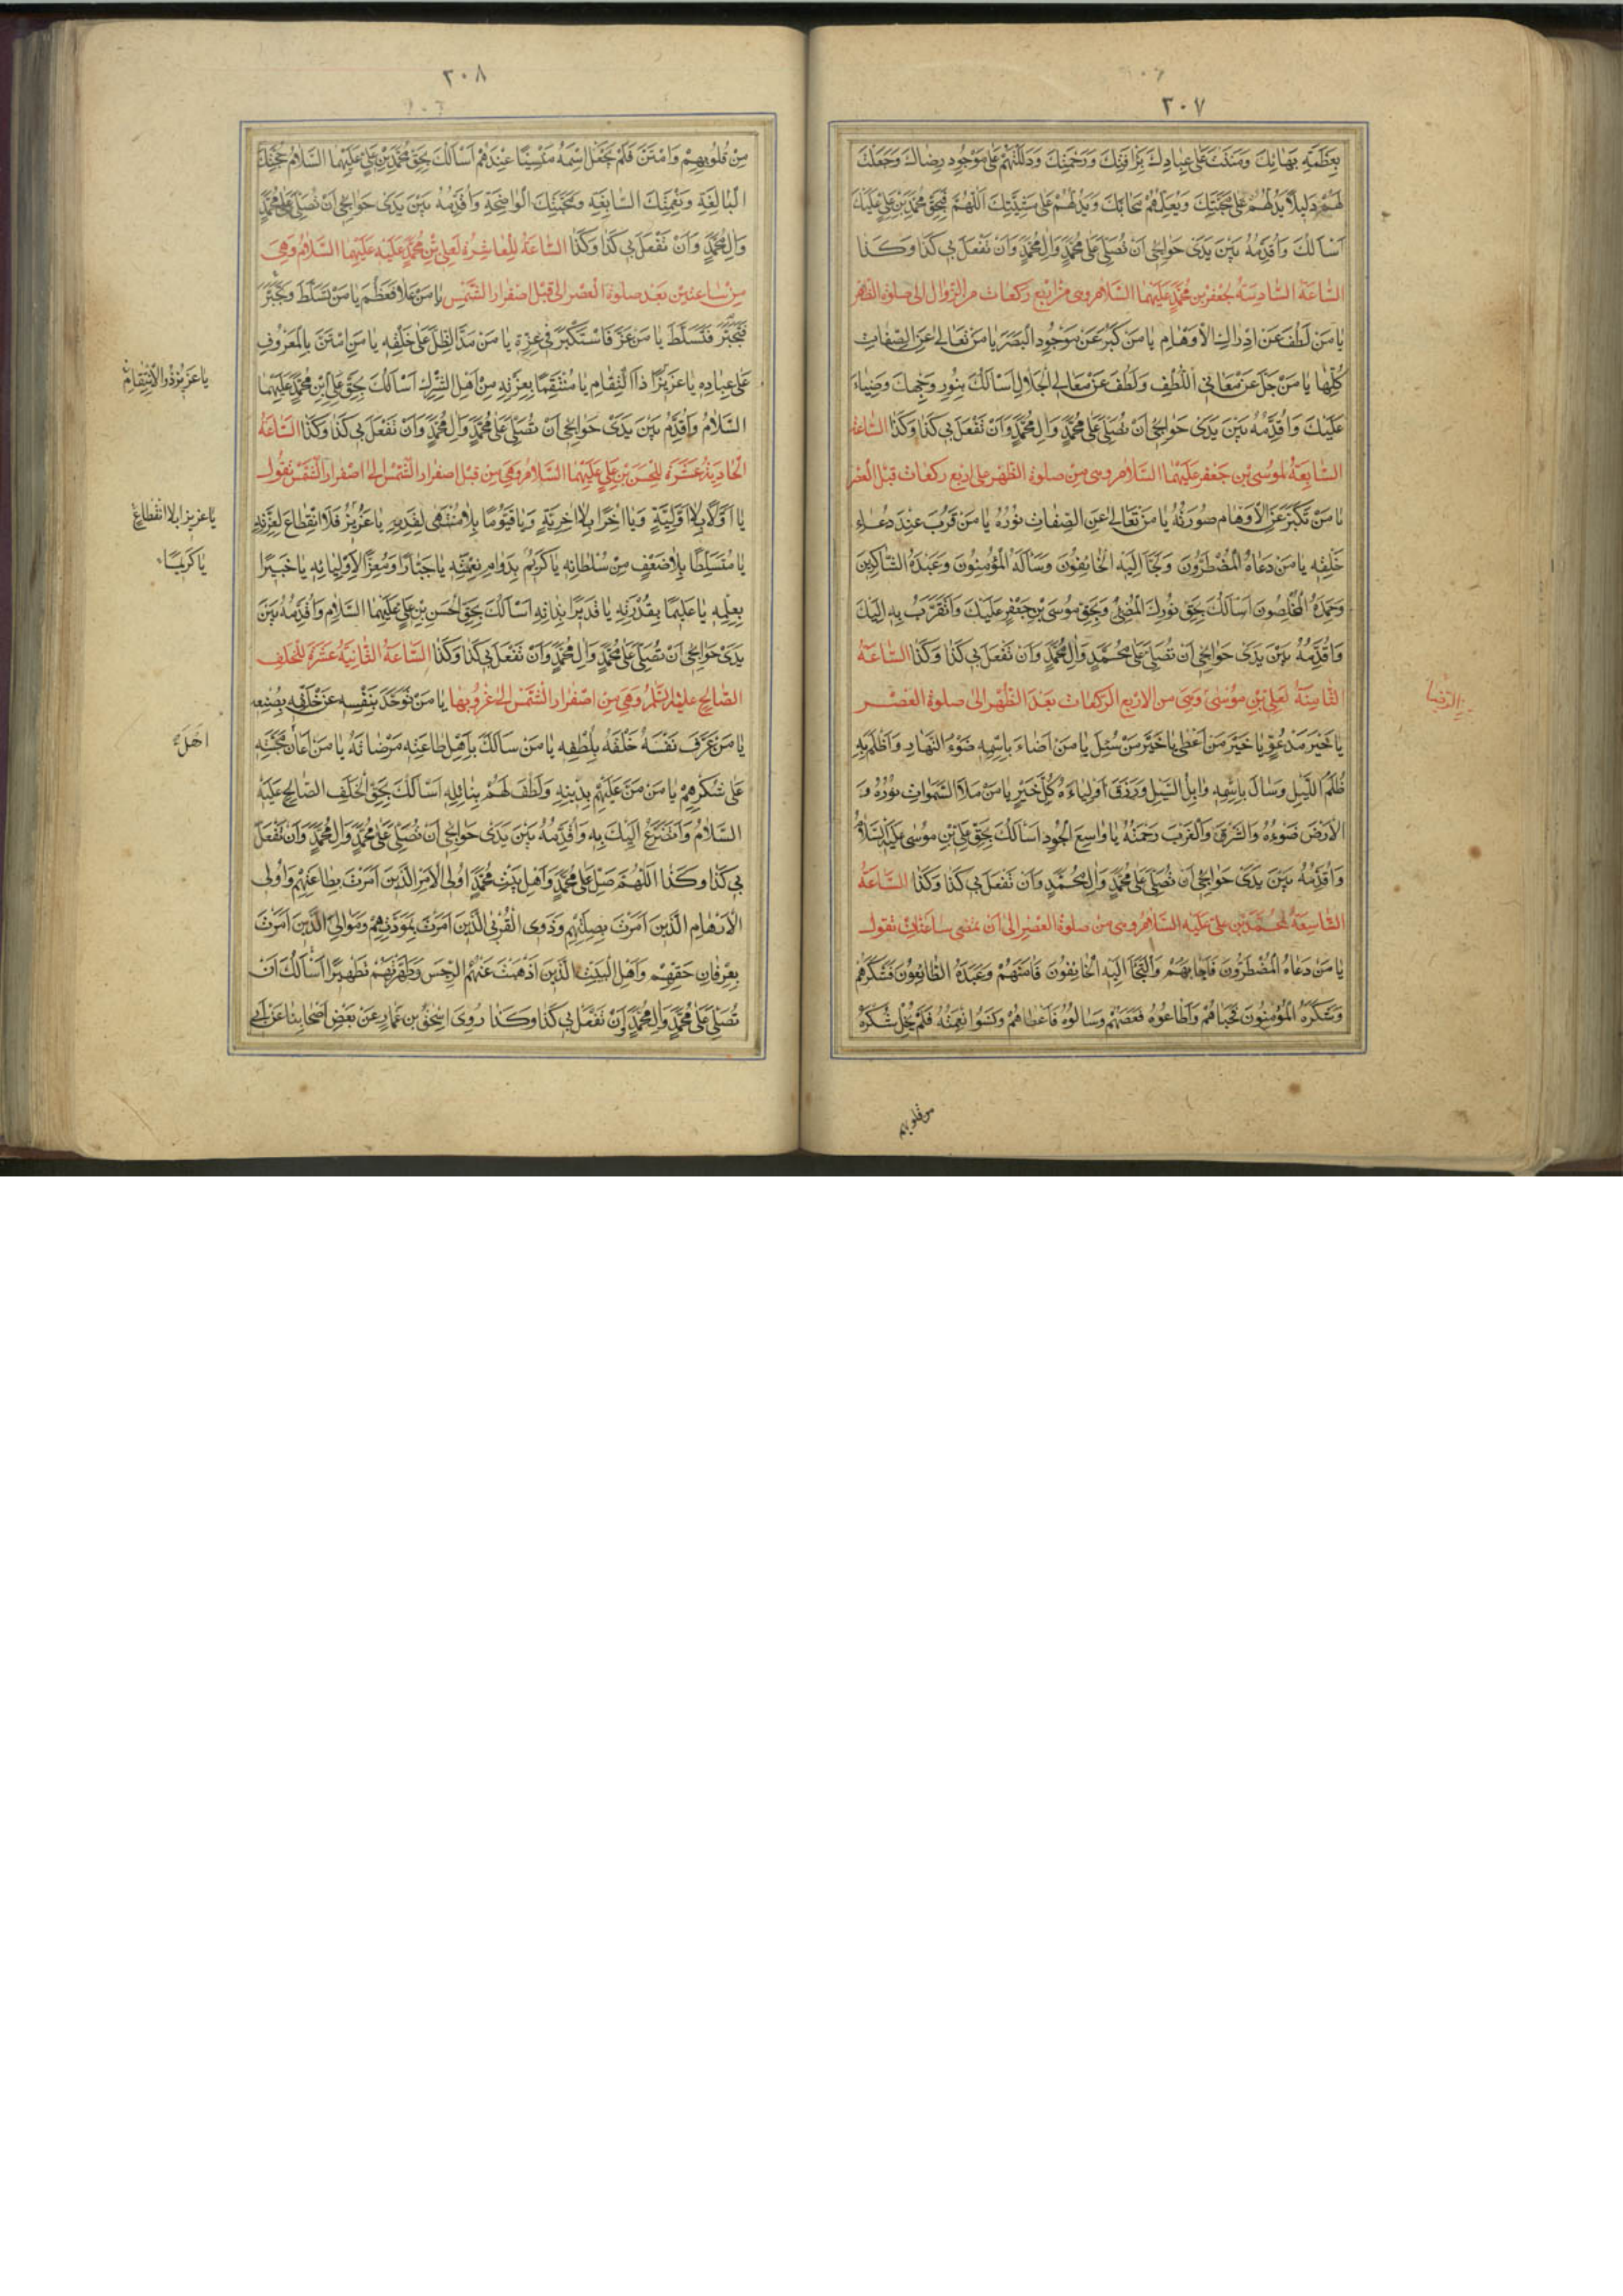 ٢٠٧
بِعَظَمَةِ بَهَائِكَ وَمَنَنْتَ عَلَى عِبَادِكَ بِرَأْفَتِكَ وَرَحْمَتِكَ وَدَلَلْتَهُمْ عَلَى مَوْجُودِ رِضَاكَ وَجَعَلْتَ
لَهُمْ دَلِيلًا يَدُلُّهُمْ عَلَى مَحَبَّتِكَ وَيُعَلِّمُهُمْ مَحَابَّكَ وَيَدُلُّهُمْ عَلَى مَشِيَّتِكَ اَللّٰهُمَّ فَبِحَقِّ مُحَمَّدِ بْنِ عَلِيٍّ عَلَيْكَ
اَسْاَلُكَ وَاُقَدِّمُهُ بَيْنَ يَدَيْ حَوَائِجِي اَنْ تُصَلِّيَ عَلَى مُحَمَّدٍ وَاٰلِ مُحَمَّدٍ وَاَنْ تَفْعَلَ بِي كَذَا وَكَذَا
السَّاعَةُ السَّادِسَةُ لِجَعْفَرِ بْنِ مُحَمَّدٍ عَلَيْهِمَا السَّلَامُ وهى من اربع ركعات من الزوال الى صلوة الظهر
يَا مَنْ لَطُفَ عَنْ اِدْرَاكِ الْاَوْهَامِ يَا مَنْ كَبُرَ عَنْ مَوْجُودِ الْبَصَرِ يَا مَنْ تَعَالَى عَنِ الصِّفَاتِ
كُلِّهَا يَا مَنْ جَلَّ عَنْ مَعَانِي اللُّطْفِ وَلَطُفَ عَنْ مَعَانِي الْجَلَالِ اَسْاَلُكَ بِنُورِ وَجْهِكَ وَضِيَاءِ
عَلَيْكَ وَاُقَدِّمُهُ بَيْنَ يَدَيْ حَوَائِجِي اَنْ تُصَلِّيَ عَلَى مُحَمَّدٍ وَاٰلِ مُحَمَّدٍ وَاَنْ تَفْعَلَ بِي كَذَا وَكَذَا السَّاعَةُ
السَّابِعَةُ لِمُوسَى بْنِ جَعْفَرٍ عَلَيْهِمَا السَّلَامُ وهى من صلوة الظهر الى اربع ركعات قبل العصر
يَا مَنْ تَكَبَّرَ عَنِ الْاَوْهَامِ صُورَتُهُ يَا مَنْ تَعَالَى عَنِ الصِّفَاتِ نُورُهُ يَا مَنْ قَرُبَ عِنْدَ دُعَاءِ
خَلْقِهِ يَا مَنْ دَعَاهُ الْمُضْطَرُّونَ وَلَجَأَ اِلَيْهِ الْخَائِفُونَ وَسَاَلَهُ الْمُؤْمِنُونَ وَعَبَدَهُ الشَّاكِرُونَ
وَحَمِدَهُ الْمُخْلِصُونَ اَسْاَلُكَ بِحَقِّ نُورِكَ الْمُضِيءِ وَبِحَقِّ مُوسَى بْنِ جَعْفَرٍ عَلَيْكَ وَاَتَقَرَّبُ بِهِ اِلَيْكَ
وَاُقَدِّمُهُ بَيْنَ يَدَيْ حَوَائِجِي اَنْ تُصَلِّيَ عَلَى مُحَمَّدٍ وَاٰلِ مُحَمَّدٍ وَاَنْ تَفْعَلَ بِي كَذَا وَكَذَا السَّاعَةُ
الثَّامِنَةُ لِعَلِيِّ بْنِ مُوسَى وَهِيَ من الاربع الركعات بَعْدَ الظُّهْرِ الى صلوة العصر
يَا خَيْرَ مَدْعُوٍّ يَا خَيْرَ مَنْ اَعْطَى يَا خَيْرَ مَنْ سُئِلَ يَا مَنْ اَضَاءَ بِاسْمِهِ ضَوْءُ النَّهَارِ وَاَظْلَمَ بِهِ
ظُلَمُ اللَّيْلِ وَسَالَ بِاسْمِهِ وَابِلُ السَّيْلِ وَرَزَقَ اَوْلِيَاءَهُ كُلَّ خَيْرٍ يَا مَنْ مَلَاَ السَّمٰوَاتِ نُورُهُ وَ
الْاَرْضَ ضَوْءُهُ وَالشَّرْقَ وَالْغَرْبَ رَحْمَتُهُ يَا وَاسِعَ الْجُودِ اَسْاَلُكَ بِحَقِّ عَلِيِّ بْنِ مُوسَى عَلَيْهِ السَّلَامُ
وَاُقَدِّمُهُ بَيْنَ يَدَيْ حَوَائِجِي اَنْ تُصَلِّيَ عَلَى مُحَمَّدٍ وَاٰلِ مُحَمَّدٍ وَاَنْ تَفْعَلَ بِي كَذَا وَكَذَا السَّاعَةُ
التَّاسِعَةُ لِمُحَمَّدِ بْنِ عَلِيٍّ عَلَيْهِ السَّلَامُ وهى من صلوة العصر الى ان تمضى ساعتان تقول
يَا مَنْ دَعَاهُ الْمُضْطَرُّونَ فَاَجَابَهُمْ وَالْتَجَأَ اِلَيْهِ الْخَائِفُونَ فَاٰمَنَهُمْ وَعَبَدَهُ الطَّائِعُونَ فَشَكَرَهُمْ
وَشَكَرَهُ الْمُؤْمِنُونَ فَحَبَاهُمْ وَاَطَاعُوهُ فَعَصَمَهُمْ وَسَاَلُوهُ فَاَعْطَاهُمْ وَنَسُوا نِعْمَتَهُ فَلَمْ يُخْلِ شُكْرَهُ
من قلوبهم
٢٠٨
مِنْ قُلُوبِهِمْ وَامْتَنَّ فَلَمْ يَجْعَلِ اسْمَهُ مَنْسِيًّا عِنْدَهُمْ اَسْاَلُكَ بِحَقِّ مُحَمَّدِ بْنِ عَلِيٍّ عَلَيْهِمَا السَّلَامُ حُجَّتِكَ
الْبَالِغَةِ وَنِعْمَتِكَ السَّابِغَةِ وَمَحَجَّتِكَ الْوَاضِحَةِ وَاُقَدِّمُهُ بَيْنَ يَدَيْ حَوَائِجِي اَنْ تُصَلِّيَ عَلَى مُحَمَّدٍ
وَاٰلِ مُحَمَّدٍ وَاَنْ تَفْعَلَ بِي كَذَا وَكَذَا السَّاعَةُ الْعَاشِرَةُ لِعَلِيِّ بْنِ مُحَمَّدٍ عَلَيْهِ عَلَيْهِمَا السَّلَامُ وَهِيَ
مِنْ سَاعَتَيْنِ بَعْدَ صَلوةِ الْعَصْرِ الى قَبْلِ اصْفِرَارِ الشَّمْسِ يَا مَنْ عَلَا فَعَظُمَ يَا مَنْ تَسَلَّطَ وَتَجَبَّرَ
فَتَجَبَّرَ فَتَسَلَّطَ يَا مَنْ عَزَّ فَاسْتَكْبَرَ فِي عِزِّهِ يَا مَنْ مَدَّ الظِّلَّ عَلَى خَلْقِهِ يَا مَنِ امْتَنَّ بِالْمَعْرُوفِ
عَلَى عِبَادِهِ يَا عَزِيزًا ذَا انْتِقَامٍ يَا مُنْتَقِمًا بِعِزَّتِهِ مِنْ اَهْلِ الشِّرْكِ اَسْاَلُكَ بِحَقِّ عَلِيِّ بْنِ مُحَمَّدٍ عَلَيْهِمَا
السَّلَامُ وَاُقَدِّمُ بَيْنَ يَدَيْ حَوَائِجِي اَنْ تُصَلِّيَ عَلَى مُحَمَّدٍ وَاٰلِ مُحَمَّدٍ وَاَنْ تَفْعَلَ بِي كَذَا وَكَذَا السَّاعَةُ
الْحَادِيَةُ عَشْرَةَ لِلْحَسَنِ بْنِ عَلِيٍّ عَلَيْهِمَا السَّلَامُ وَهِيَ مِنْ قَبْلِ اصْفِرَارِ الشَّمْسِ اِلَى اصْفِرَارِ الشَّمْسِ تَقُولُ
يَا اَوَّلًا بِلَا اَوَّلِيَّةٍ وَيَا اٰخِرًا بِلَا اٰخِرِيَّةٍ وَيَا قَيُّومًا بِلَا مُنْتَهًى لِقِدَمِهِ يَا عَزِيزُ فَلَا انْقِطَاعَ لِعِزَّتِهِ
يَا مُتَسَلِّطًا بِلَا ضَعْفٍ مِنْ سُلْطَانِهِ يَا كَرِيمُ بِدَوَامِ نِعْمَتِهِ يَا جَبَّارًا وَمُعِزًّا لِاَوْلِيَائِهِ يَا خَبِيرًا
بِعِلْمِهِ يَا عَلِيمًا بِقُدْرَتِهِ يَا قَدِيرًا بِذَاتِهِ اَسْاَلُكَ بِحَقِّ الْحَسَنِ بْنِ عَلِيٍّ عَلَيْهِمَا السَّلَامُ وَاُقَدِّمُهُ بَيْنَ
يَدَيْ حَوَائِجِي اَنْ تُصَلِّيَ عَلَى مُحَمَّدٍ وَاٰلِ مُحَمَّدٍ وَاَنْ تَفْعَلَ بِي كَذَا وَكَذَا السَّاعَةُ الثَّانِيَةُ عَشْرَةَ لِلْخَلَفِ
الصَّالِحِ عليه السلم وَهِيَ مِنِ اصْفِرَارِ الشَّمْسِ اِلَى غُرُوبِهَا يَا مَنْ تَوَحَّدَ بِنَفْسِهِ عَنْ خَلْقِهِ بِصُنْعِهِ
يَا مَنْ عَرَّفَ نَفْسَهُ خَلْقَهُ بِلُطْفِهِ يَا مَنْ سَلَكَ بِاَهْلِ طَاعَتِهِ مَرْضَاتَهُ يَا مَنْ اَعَانَ مَحَبَّتِهِ
عَلَى شُكْرِهِمْ يَا مَنْ مَنَّ عَلَيْهِمْ بِدِينِهِ وَلَطُفَ لَهُمْ بِنَائِلِهِ اَسْاَلُكَ بِحَقِّ الْخَلَفِ الصَّالِحِ عَلَيْهِ
السَّلَامُ وَاَتَضَرَّعُ اِلَيْكَ بِهِ وَاُقَدِّمُهُ بَيْنَ يَدَيْ حَوَائِجِي اَنْ تُصَلِّيَ عَلَى مُحَمَّدٍ وَاٰلِ مُحَمَّدٍ وَاَنْ تَفْعَلَ
بِي كَذَا وَكَذَا اَللّٰهُمَّ صَلِّ عَلَى مُحَمَّدٍ وَاَهْلِ بَيْتِ مُحَمَّدٍ اُولِي الْاَمْرِ الَّذِينَ اَمَرْتَ بِطَاعَتِهِمْ وَاُولِي
الْاَرْحَامِ الَّذِينَ اَمَرْتَ بِصِلَتِهِمْ وَذَوِي الْقُرْبَى الَّذِينَ اَمَرْتَ بِمَوَدَّتِهِمْ وَمَوَالِيَ الَّذِينَ اَمَرْتَ
بِعِرْفَانِ حَقِّهِمْ وَاَهْلِ الْبَيْتِ الَّذِينَ اَذْهَبْتَ عَنْهُمُ الرِّجْسَ وَطَهَّرْتَهُمْ تَطْهِيرًا اَسْاَلُكَ اَنْ
تُصَلِّيَ عَلَى مُحَمَّدٍ وَاٰلِ مُحَمَّدٍ وَاَنْ تَفْعَلَ بِي كَذَا وَكَذَا رُوِيَ اِسْحٰقُ بْنِ عَمَّارٍ عَنْ بَعْضِ اَصْحَابِنَا عَنْ اَبِي
يَا عَزِيزُ ذُو الْاِنْتِقَامِ
يَا عَزِيزًا بِلَا انْقِطَاعِ
يَا كَرِيمًا
اَهْلَ